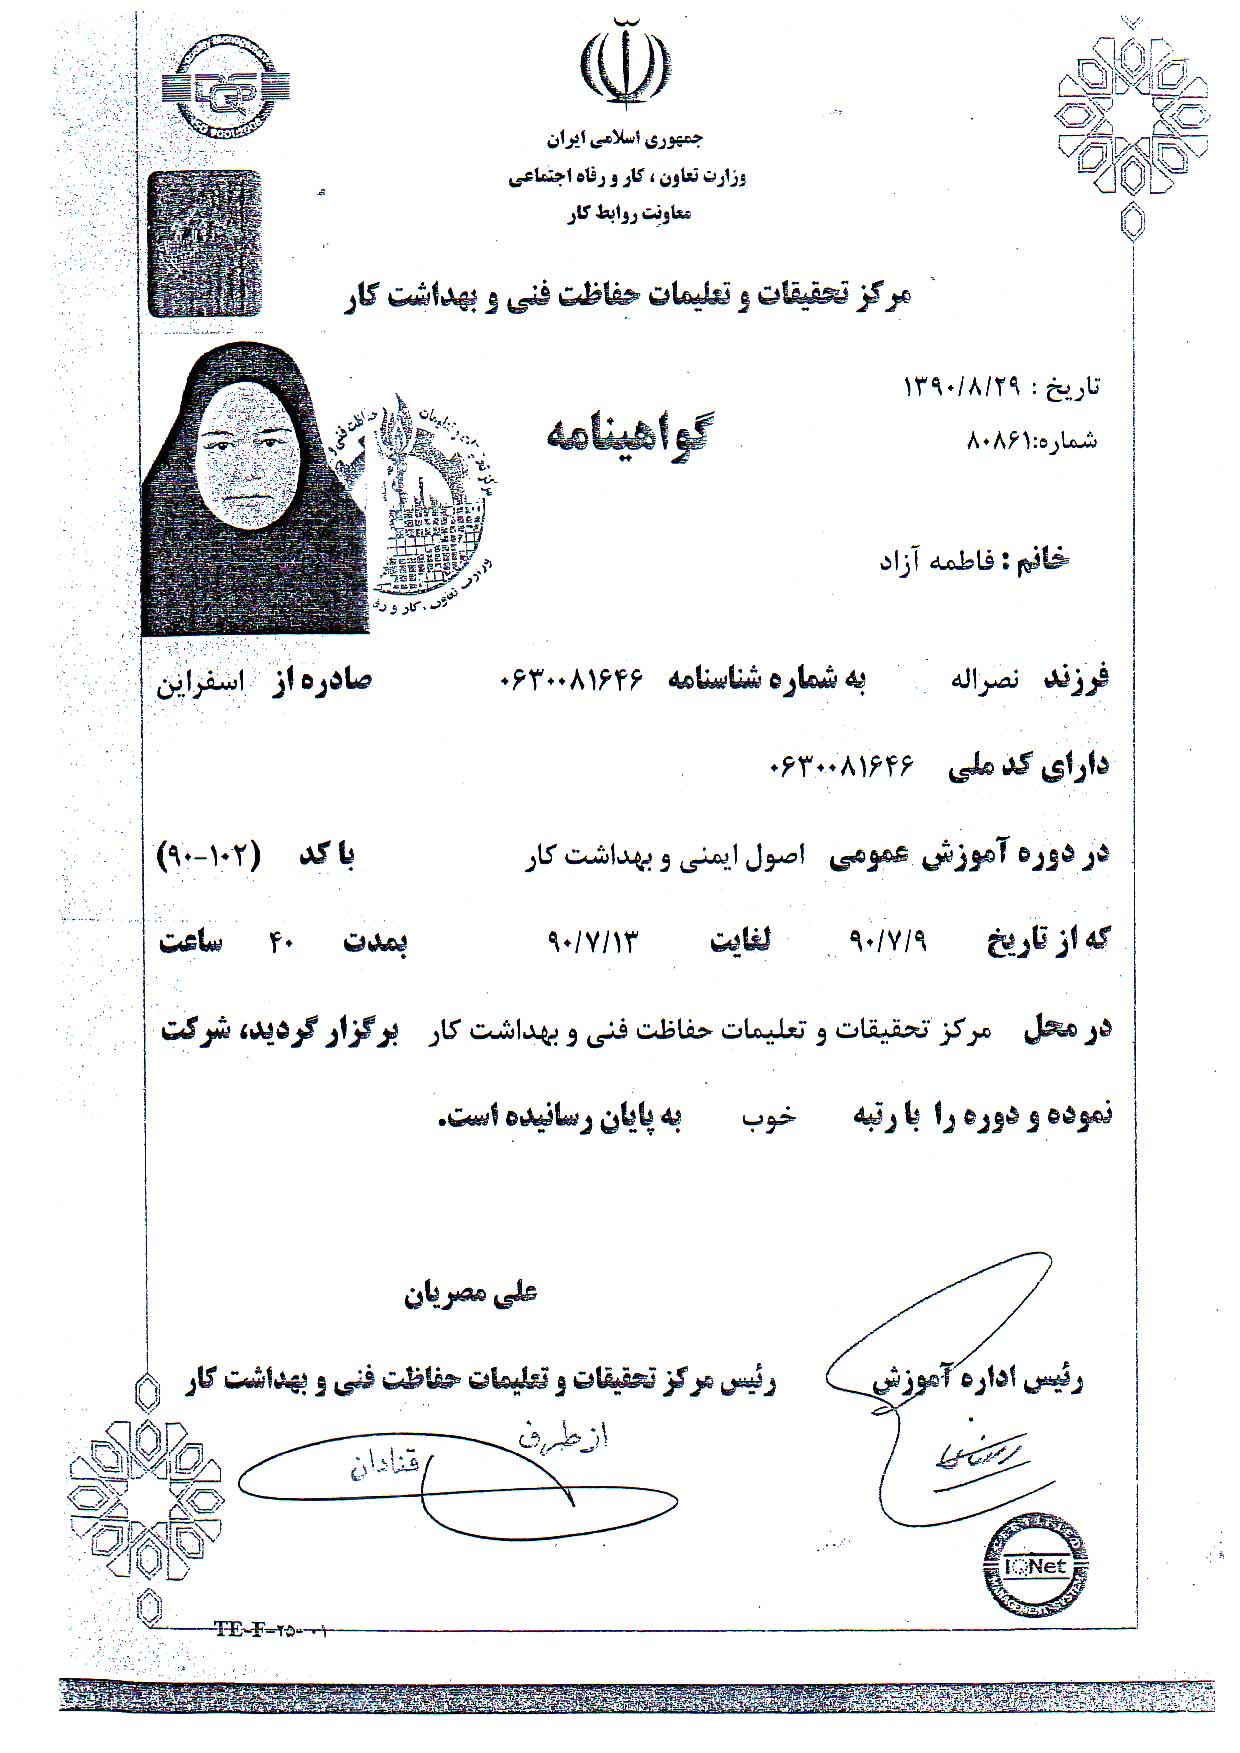 جمهوری اسلامی ایران
وزارت تعاون ، کار و رفاه اجتماعی
معاونت روابط کار
مرکز تحقیقات و تعلیمات حفاظت فنی و بهداشت کار
تاریخ : ۱۳۹۰/۸/۲۹
شماره:۸۰۸۶۱
گواهینامه
خانم : فاطمه آزاد
فرزند نصراله به شماره شناسنامه ۰۶۳۰۰۸۱۶۴۶ صادره از اسفراین
دارای کد ملی ۰۶۳۰۰۸۱۶۴۶
در دوره آموزش عمومی اصول ایمنی و بهداشت کار با کد (۹۰-۱۰۲)
که از تاریخ ۹۰/۷/۹ لغایت ۹۰/۷/۱۳ بمدت ۴۰ ساعت
در محل مرکز تحقیقات و تعلیمات حفاظت فنی و بهداشت کار برگزار گردید، شرکت
نموده و دوره را با رتبه خوب به پایان رسانیده است.
علی مصریان
رئیس اداره آموزش
رئیس مرکز تحقیقات و تعلیمات حفاظت فنی و بهداشت کار
از طرف
قنادان
IQNet
MANAGEMENT SYSTEM
TE-F-۲۵-۰۱